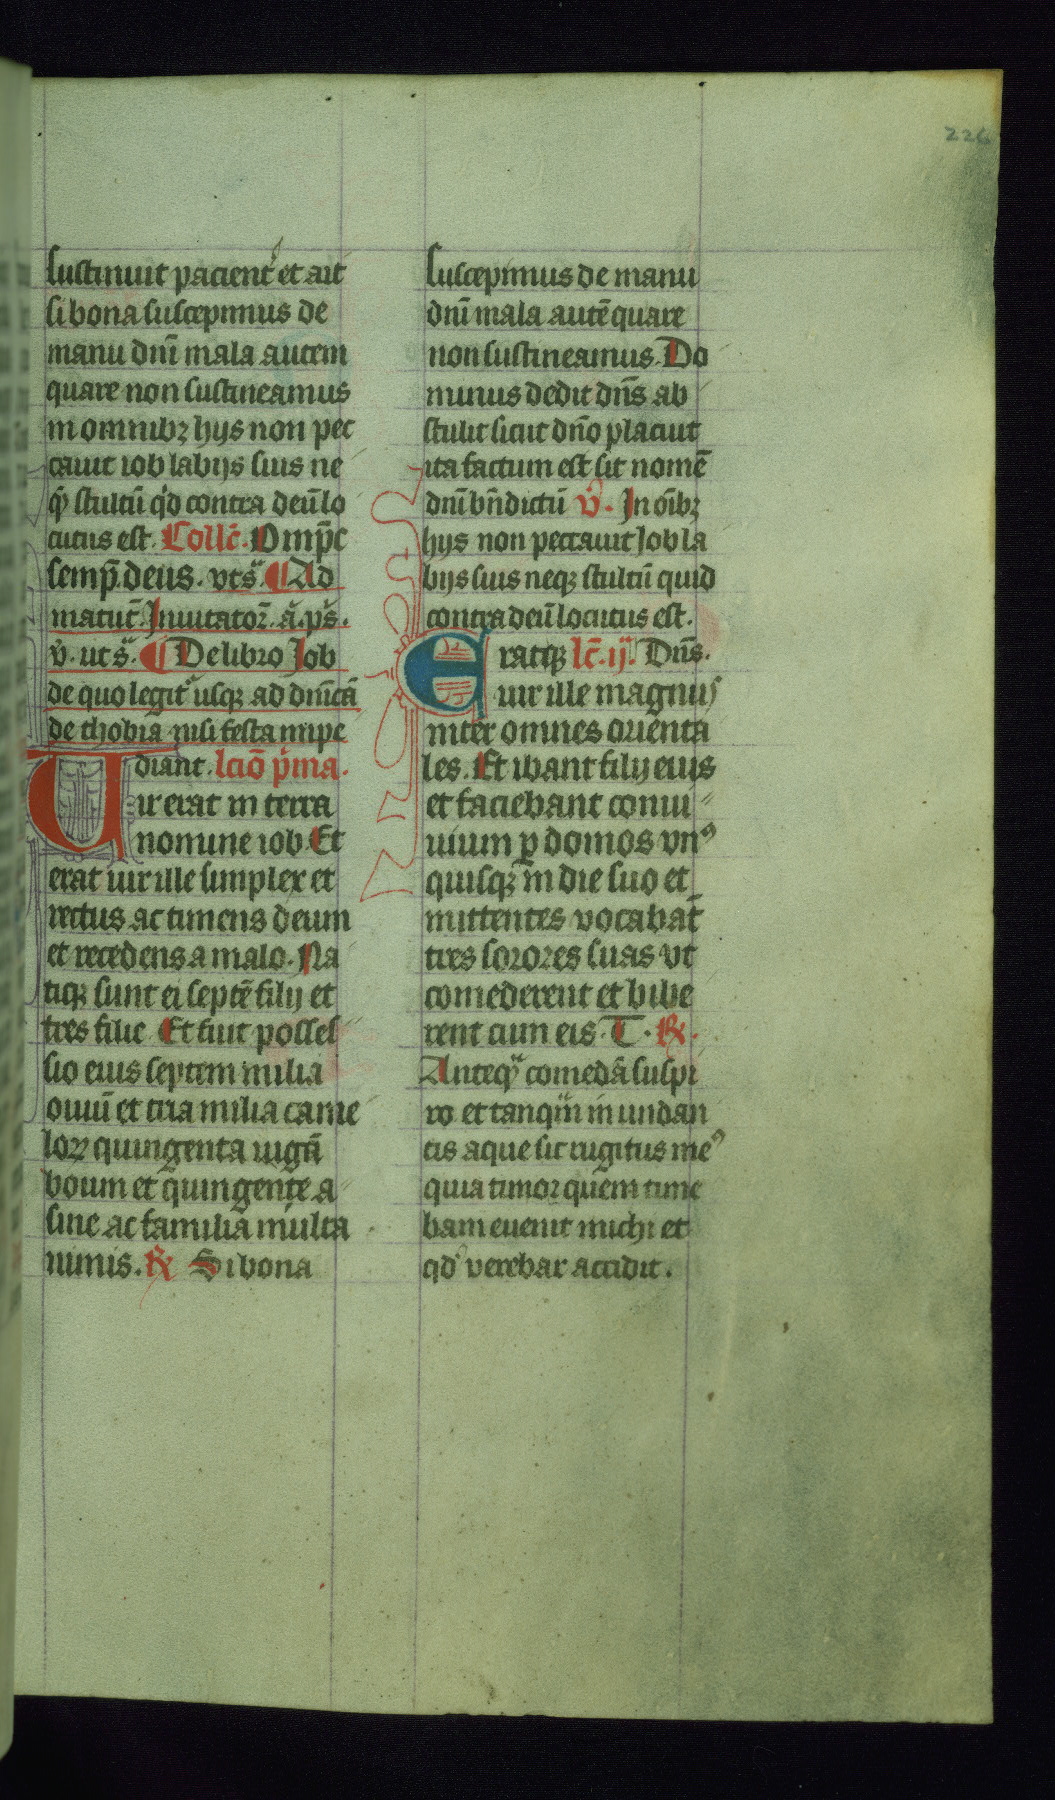 226
sustinuit pacient᷑ et ait
si bona suscepimus de
manu dnī mala autem
quare non sustineamus
in omnibꝫ hijs non pec
cauit iob labijs suis ne
qꝫ stultū qͥd contra deū lo
cutus est. Collc̄. Omp̄c
semp̄ deus. vt sᷓ. ¶ Ad
matut᷑. Inuitator̄. a᷑. ps̄.
v̄. ut sᷓ. ¶ De libro Job
de quo legit᷑ usqꝫ ad dnīcā
de thobia nisi festa inpe
diant. lcıō p̄ma.
Uir erat in terra
nomine iob Et
erat uir ille simplex et
rectus ac timens deum
et recedens a malo. Na
tiqꝫ sunt ei septē filij et
tres filie Et fuit posses
sio eius septem milia
ouiū et tria milia came
loꝝ quingenta iugā
boum et quingente a
sine ac familia multa
nimis. ℟ Si bona
suscepimus de manu
dnī mala autē quare
non sustineamus. Do
minus dedit dn̄s ab
stulit sicut dn̄o placuit
ita factum est sit nomē
dnī bn̄dictū v̄. In oībꝫ
hijs non peccauit Job la
bijs suis neqꝫ stultū quid
contra deū locutus est.
Eratqꝫ lc̄. ij. Dn̄s.
uir ille magnus
inter omnes orienta
les. Et ibant filij eius
et faciebant conui
uium ꝑ domos vnꝰ
quisqꝫ in die suo et
mittentes vocabāt
tres sorores suas vt
comederent et bibe
rent cum eis. T. ℟.
Anteqᷓ comedā suspi
ro et tanqᷓm inundan
tis aque sic rugitus meꝰ
quia timor quem time
bam euenit michi et
qd̓ verebar accidit.